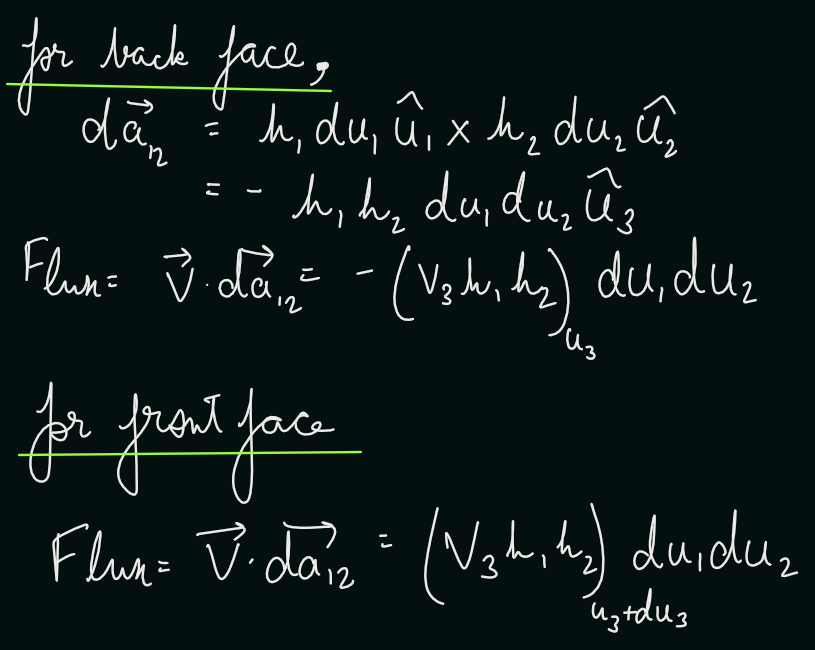 for back face,
$d\vec{a}_{12} = h_1 du_1 \hat{u}_1 \times h_2 du_2 \hat{u}_2$
$= - h_1 h_2 du_1 du_2 \hat{u}_3$
Flux= $\vec{V} \cdot \overrightarrow{da}_{12} = - (V_3 h_1 h_2)_{u_3} du_1 du_2$
for front face
Flux= $\overrightarrow{V} \cdot \overrightarrow{da}_{12} = (V_3 h_1 h_2)_{u_3+du_3} du_1 du_2$